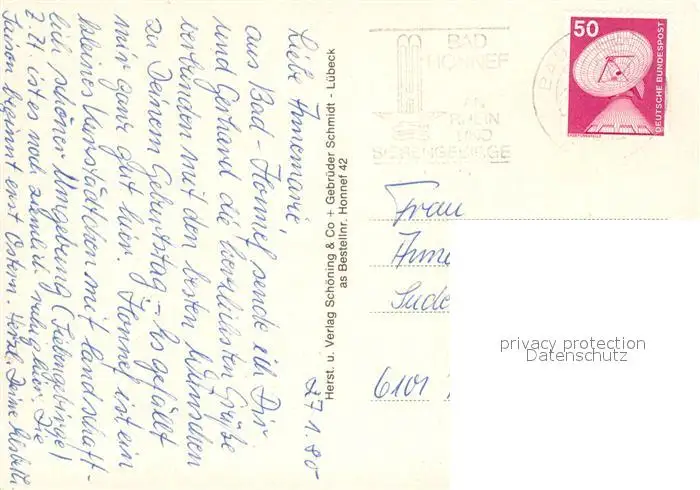 Liebe Annemarie,
aus Bad-Honnef sende ich Dir
und Gerhard die herzlichsten Grüße
verbunden mit den besten Wünschen
zu Deinem Geburtstag – Es gefällt
mir ganz gut hier. Honnef ist ein
kleines Kurstädtchen mit landschaft-
lich schöner Umgebung (Siebengebirge)
Z. Zt. ist es noch ziemlich ruhig hier. Die
Saison beginnt erst Ostern. Herzl. Deine
27.1.80
Herst. u. Verlag Schöning & Co + Gebrüder Schmidt - Lübeck
as Bestellnr. Honnef 42
BAD
HONNEF
AM
RHEIN
UND
SIEBENGEBIRGE
50
DEUTSCHE BUNDESPOST
ERDFUNKSTELLE
Frau
6101
privacy protection
Datenschutz